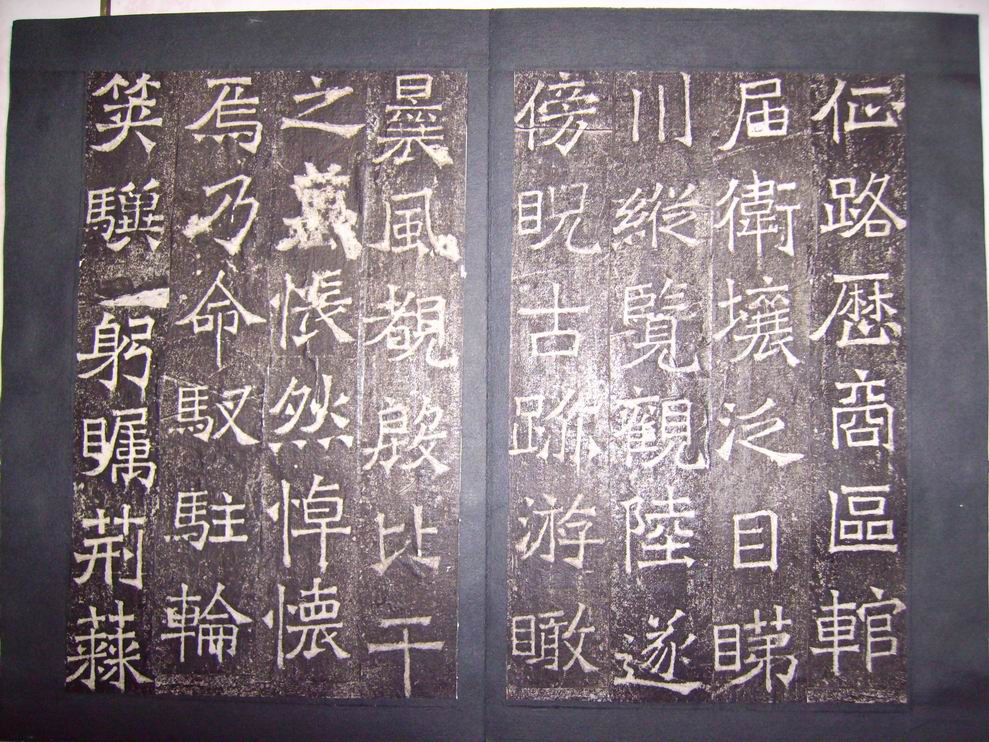 佂路厯商區輨
届衛壤泛目睇
川縱覽觀陸遂
傍睨古跡游瞰
曩風覩殷比干
之墓悵然悼懷
焉乃命馭駐輪
筴驥躬矚荊